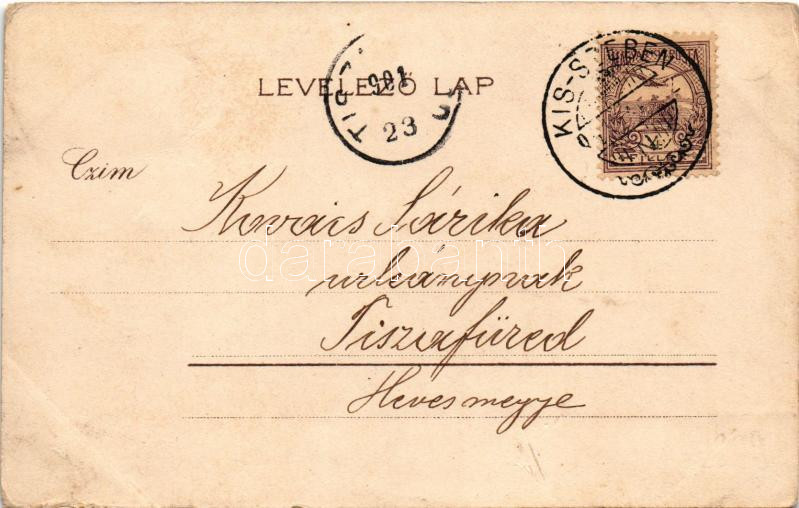 LEVELEZŐ LAP
901
23
KIS-SZEBEN
Czim
Kovács Sárika
urleánynak
Tiszafüred
Hevesmegye
darabanth